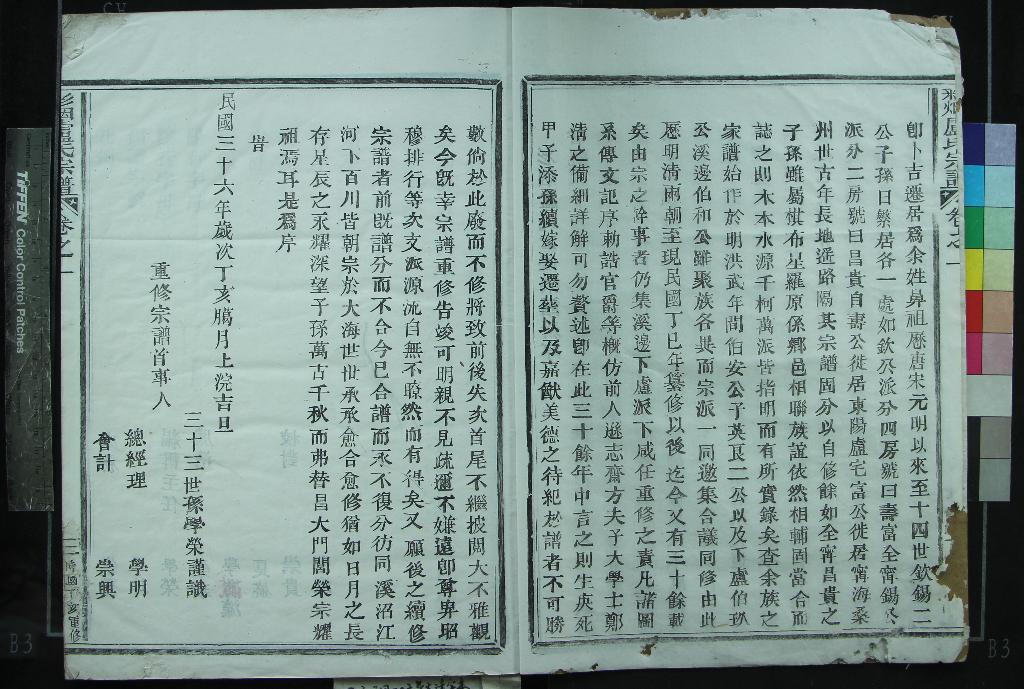 卽卜吉遷居爲余姓鼻祖歷唐宋元明以來至十四世欽錫二
公子孫日繁居各一處如欽公派分四房號曰壽富全甯錫公
派分二房號曰昌貴自壽公徙居東陽盧宅富公徙居甯海桑
州世古年長地遥路隔其宗譜固分以自修餘如全甯昌貴之
子孫雖屬棋布星羅原係鄉邑相聯族誼依然相輔固當合而
誌之則木本水源千柯萬派皆指明而有所實錄矣查余族之
家譜始作於明洪武年間伯安公子英艮二公以及下盧伯玖
公溪邊伯和公雖聚族各異而宗派一同邀集合議同修由此
歷明清兩朝至現民國丁巳年纂修以後迄今又有三十餘載
矣由宗之幹事者仍集溪邊下盧派下咸任重修之責凡諸圖
系傳文記序勅誥官爵等槪仿前人遜志齋方夫子大學士鄭
清之備細詳解可勿贅述卽在此三十餘年中言之則生庚死
甲子添孫續嫁娶遷塟以及嘉猷美德之待紀於譜者不可勝
數倘於此廢而不修將致前後失次首尾不繼披閱大不雅觀
矣今旣幸宗譜重修告竣可明親不見疏邇不嫌遠卽尊卑昭
穆排行等次支派源流自無不暸然而有得矣又願後之續修
宗譜者前旣譜分而不合今已合譜而永不復分彷同溪沼江
河卜百川皆朝宗於大海世世承承愈合愈修猶如日月之長
存星辰之永耀深望子孫萬古千秋而弗替昌大門閭榮宗耀
祖焉耳是爲序
旹
民國三十六年歲次丁亥臈月上浣吉旦
三十三世孫學榮謹識
重修宗譜首事人
總經理 學明
會計 崇興
盧氏宗譜 卷之一
盧氏宗譜 卷之一
民國丁亥重修
TIFFEN Color Control Patches
B3
B3